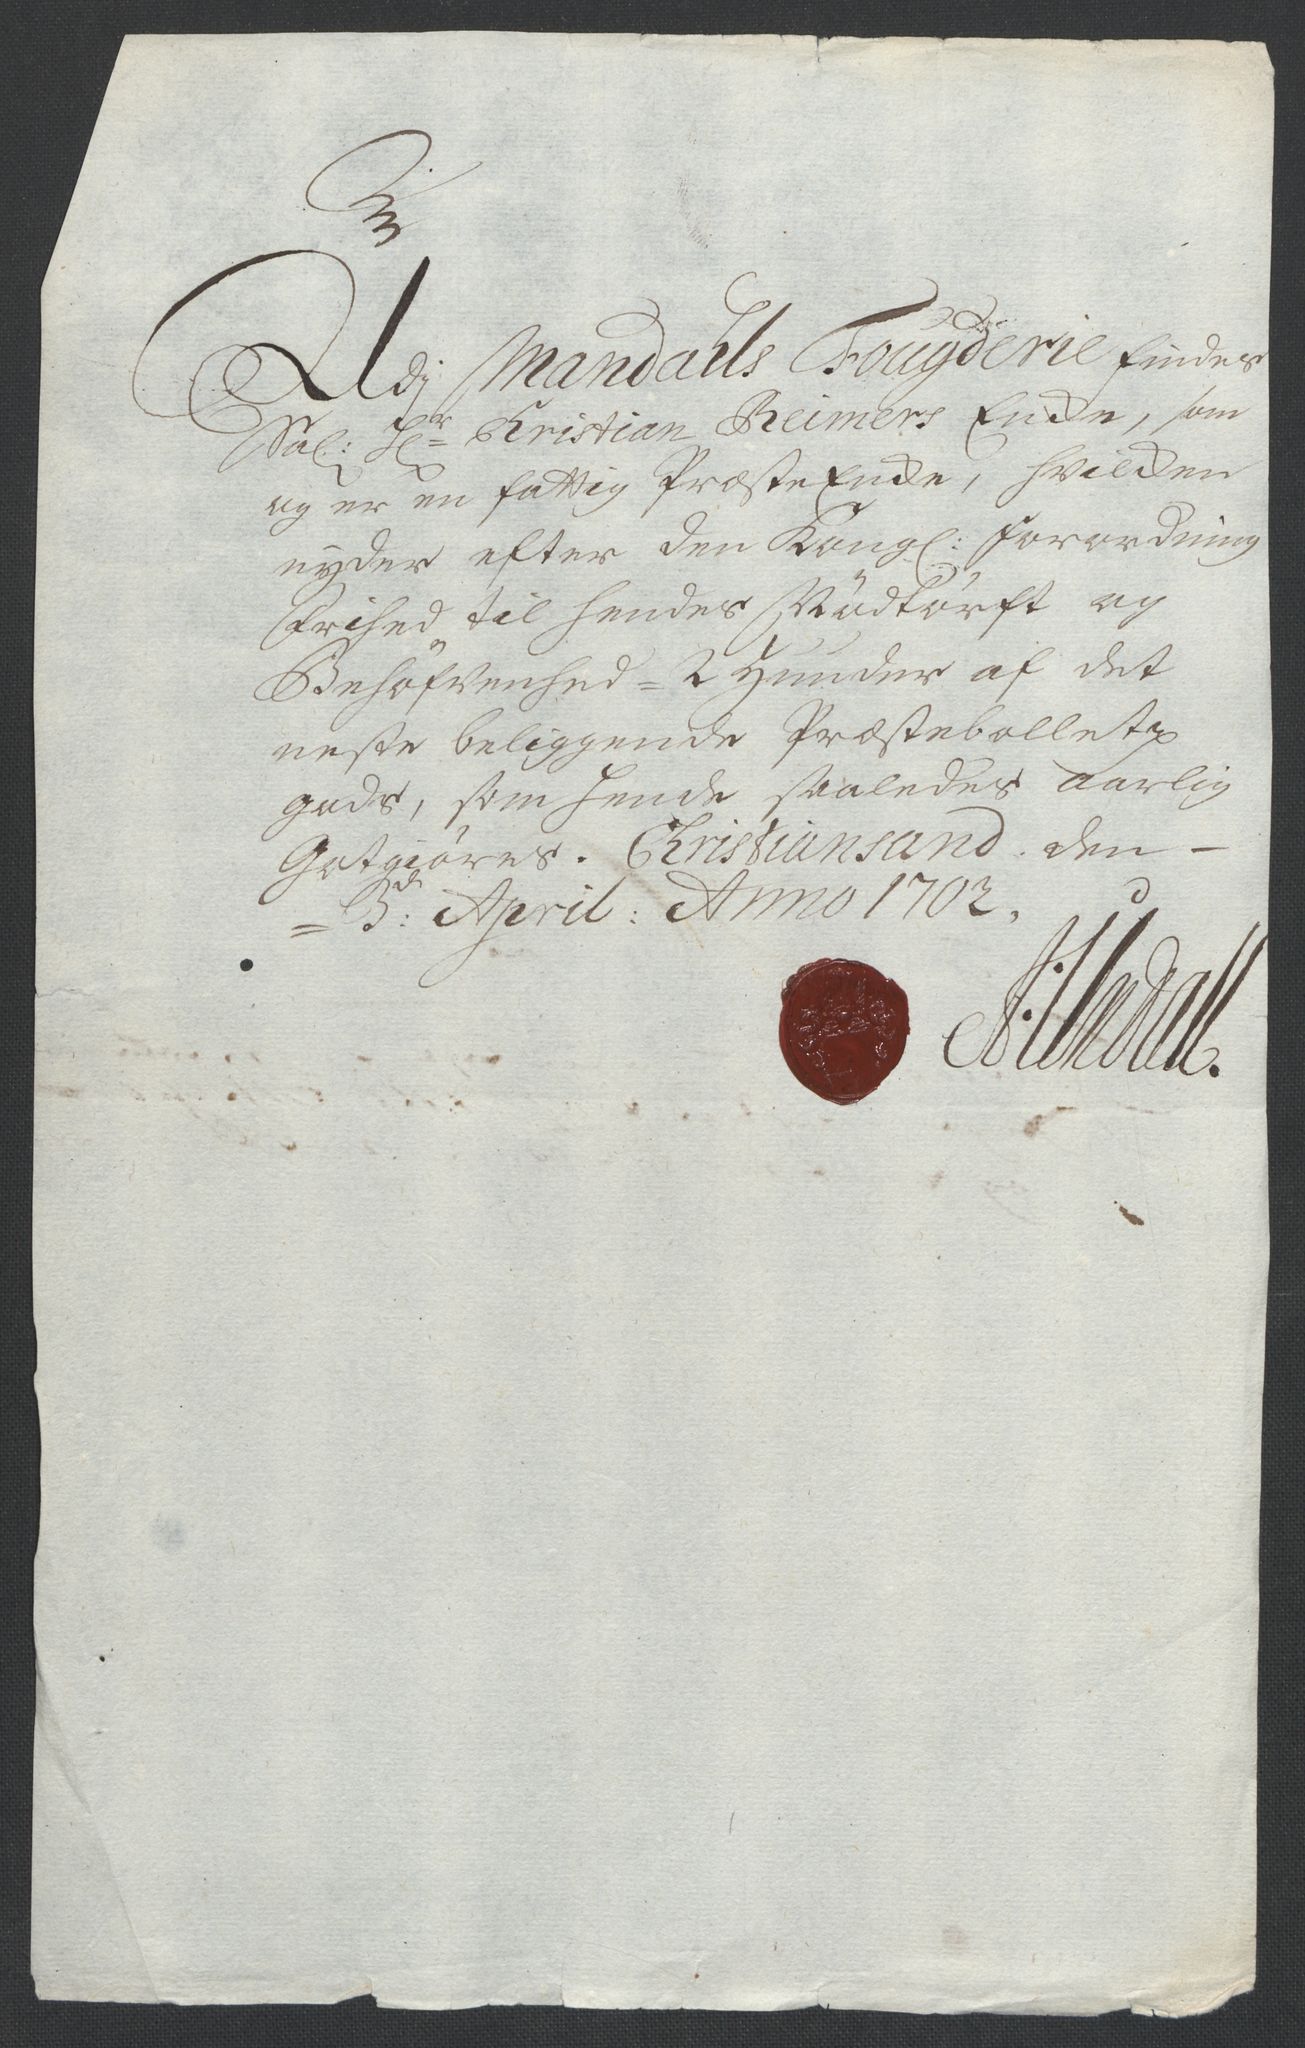 Udj Mandahls Fougderie findes
Sal: Hr Christian Reimers Encke, som
og er en fattig Præste Encke, hvilcken
nyder efter den Kongl: Forordning
Frihed til hendes Nödtörft og
Behöfvenhed = 2 Hunder af det
neste beliggende Præstebollet
gods, som hende saaledes aarlig
Gotgiöres. Christiansand den -
= 3de: April: Anno 1702.